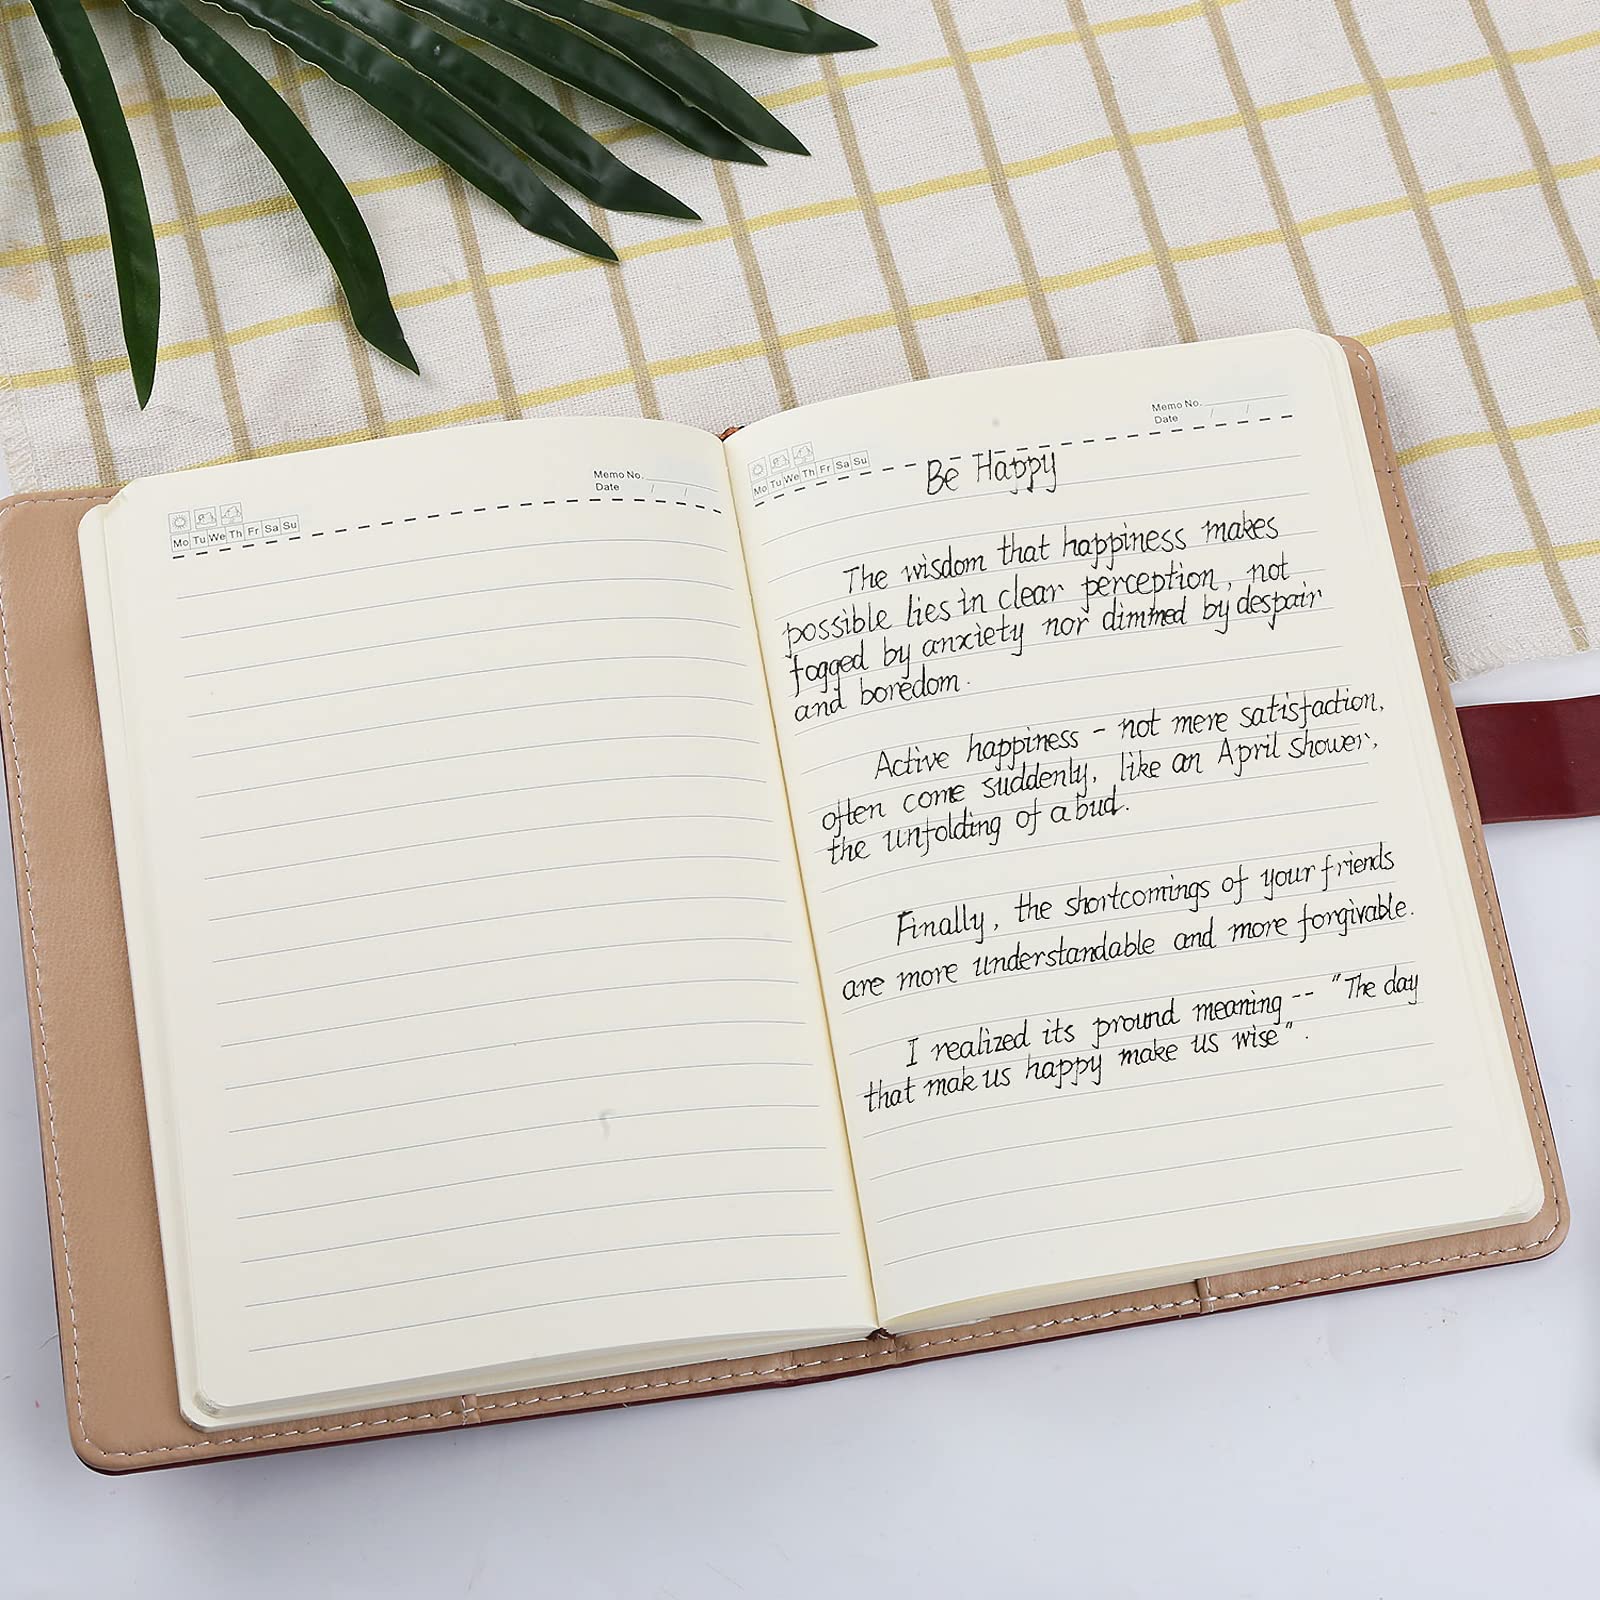 Memo No.
Date / /
Mo Tu We Th Fr Sa Su
Memo No.
Date / /
Mo Tu We Th Fr Sa Su
Be Happy
The wisdom that happiness makes
possible lies in clear perception, not
fogged by anxiety nor dimmed by despair
and boredom.
Active happiness - not mere satisfaction,
often come suddenly, like an April shower,
the unfolding of a bud.
Finally, the shortcomings of your friends
are more understandable and more forgivable.
I realized its pround meaning -- "The day
that mak us happy make us wise".